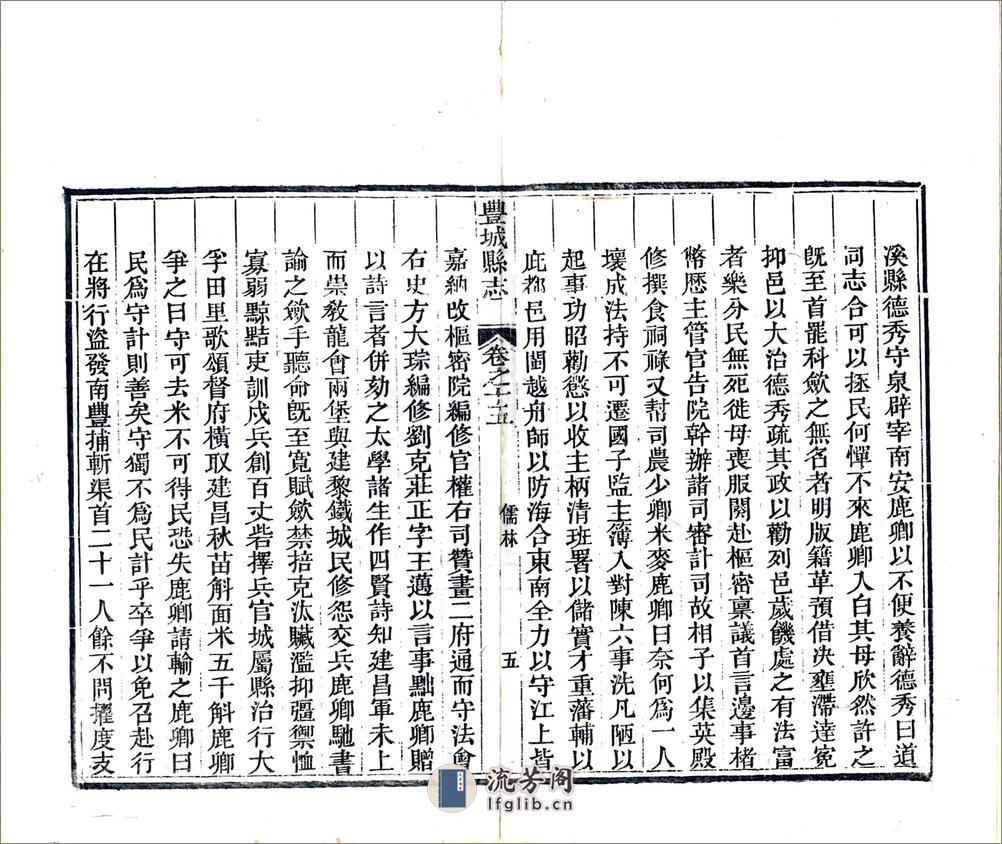 溪縣德秀守泉辟宰南安鹿卿以不便養辭德秀曰道
同志合可以拯民何憚不來鹿卿入白其母欣然許之
旣至首罷科歛之無名者明版籍革預借决壅滯達寃
抑邑以大治德秀疏其政以勸列邑歲饑處之有法富
者樂分民無死徙母喪服闋赴樞密稟議首言邊事楮
幣歷主管官告院幹辦諸司審計司故相子以集英殿
修撰食祠祿又幇司農少卿米麥鹿卿曰奈何為一人
壞成法持不可遷國子監主簿入對陳六事洗凡陋以
起事功昭勸懲以收主柄清班署以儲實才重藩輔以
庇都邑用閩越舟師以防海合東南全力以守江上皆
豐城縣志
卷之十五
儒林
五
嘉納改樞密院編修官權右司贊畫二府通而守法會
右史方大琮編修劉克莊正字王邁以言事黜鹿卿贈
以詩言者併劾之太學諸生作四賢詩知建昌軍未上
而崇敎龍會兩堡與建黎鐵城民修怨交兵鹿卿馳書
諭之歛手聽命旣至寬賦歛禁掊克汰贓濫抑彊禦恤
寡弱黥黠吏訓戍兵創百丈砦擇兵官城屬縣治行大
孚田里歌頌督府橫取建昌秋苗斛面米五千斛鹿卿
爭之曰守可去米不可得民恐失鹿卿請輸之鹿卿曰
民為守計則善矣守獨不為民計乎卒爭以免召赴行
在將行盜發南豐捕斬渠首二十一人餘不問擢度支
流芳阁
lfglib.cn